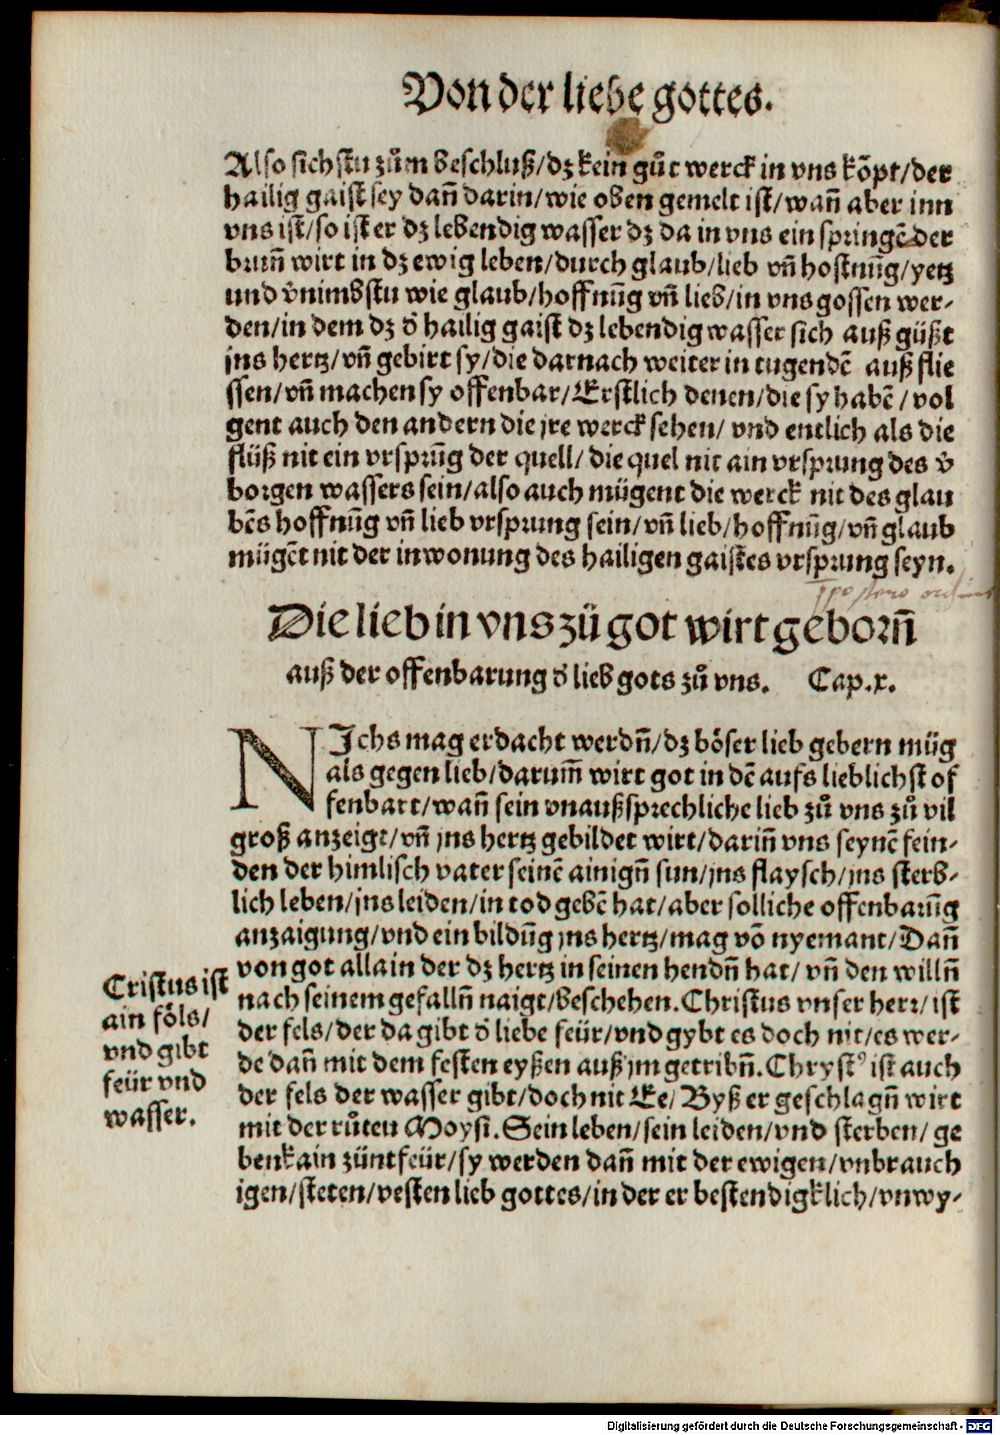 Von der liebe gottes.
Also sichstu zům beschluß/dz kein gůt werck in vns kõpt/der
hailig gaist sey dañ darin/wie oben gemelt ist/wañ aber inn
vns ist/so ist er dz lebendig wasser dz da in vns ein springẽ der
brunn wirt in dz ewig leben/durch glaub/lieb vñ hoffnũg/yetz
und v̄nimbstu wie glaub/hoffnũg vñ lieb/in vns gossen wer-
den/in dem dz d̄ hailig gaist dz lebendig wasser sich auß güßt
jns hertz/vñ gebirt sy/die darnach weiter in tugendẽ auß flie
ssen/vñ machen sy offenbar/Erstlich denen/die sy habẽ/vol
gent auch den andern die jre werck sehen/vnd entlich als die
flüß nit ein vrsprũg der quell/die quel nit ain vrsprung des v̄
borgen wassers sein/also auch mügent die werck nit des glau
bẽs hoffnũg vñ lieb vrsprung sein/vñ lieb/hoffnũg/vñ glaub
mügẽt nit der inwonung des hailigen gaistes vrsprung seyn.
Die lieb in vns zů got wirt gebornñ
auß der offenbarung d̄ lieb gots zů vns. Cap.x.
NIchs mag erdacht werdñ/dz böser lieb gebern müg
als gegen lieb/darum̃ wirt got in dẽ aufs lieblichst of
fenbart/wañ sein vnaußsprechliche lieb zů vns zů vil
groß anzeigt/vñ jns hertz gebildet wirt/dariñ vns seynẽ fein-
den der himlisch vater seinẽ ainigñ sun/jns flaysch/jns sterb-
lich leben/jns leiden/in tod gebẽ hat/aber solliche offenbarũg
anzaigung/vnd ein bildũg jns hertz/mag võ nyemant/Dañ
von got allain der dz hertz in seinen hendñ hat/vñ den willñ
nach seinem gefallñ naigt/beschehen. Christus vnser herr/ist
der fels/der da gibt d̄ liebe feür/vnd gybt es doch nit/es wer-
de dañ mit dem festen eyßen auß jm getribñ. Chryst⁹ ist auch
der fels der wasser gibt/doch nit Ee/Byß er geschlagñ wirt
mit der růten Moysi. Sein leben/sein leiden/vnd sterben/ge
ben kain züntfeür/sy werden dañ mit der ewigen/vnbrauch
igen/steten/vesten lieb gottes/in der er bestendigklich/vnwy-
Cristus ist
ain föls/
vnd gibt
feür vnd
wasser.
Digitalisierung gefördert durch die Deutsche Forschungsgemeinschaft - DFG